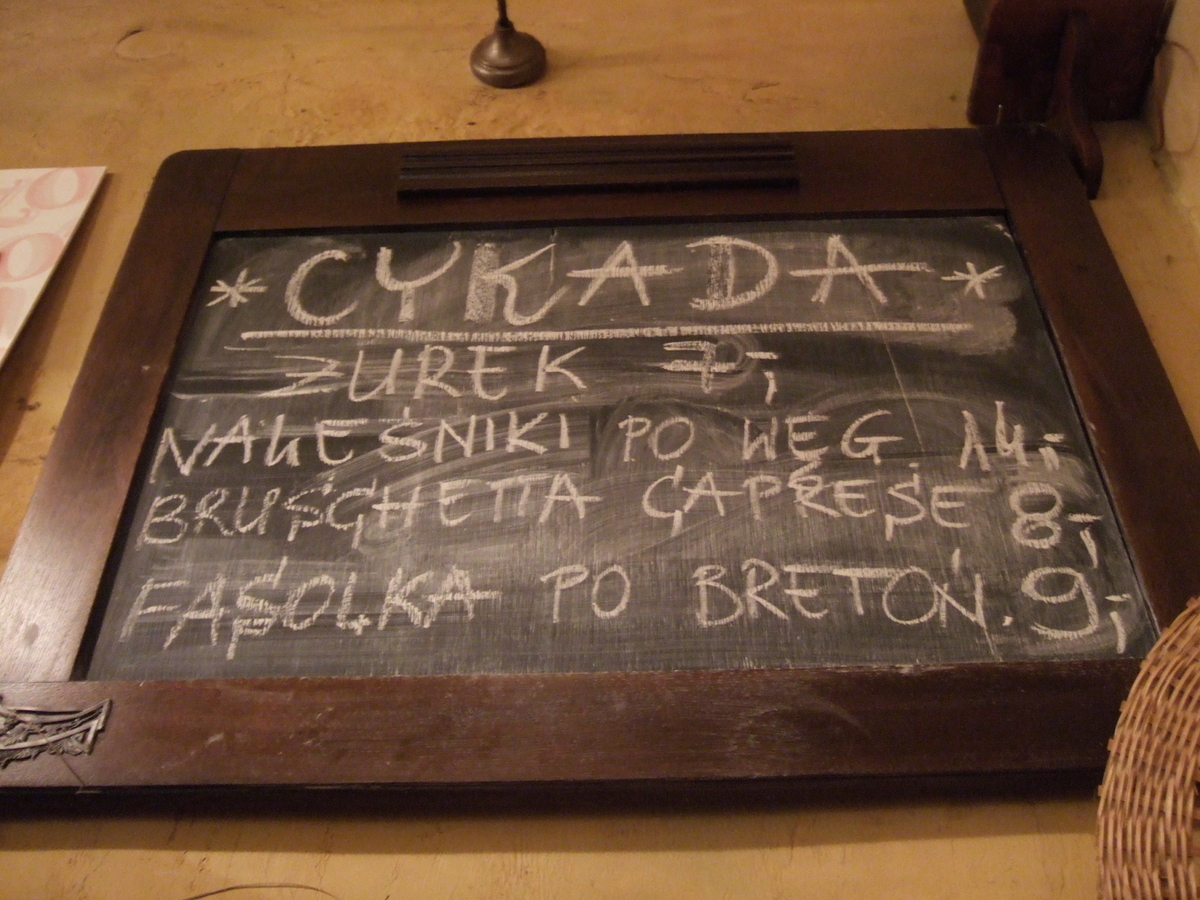 * CYKADA *
ŻUREK 7,-
NALEŚNIKI PO WĘG. 14,-
BRUSCHETTA CAPRESE 8,-
FASOLKA PO BRETOŃ. 9,-